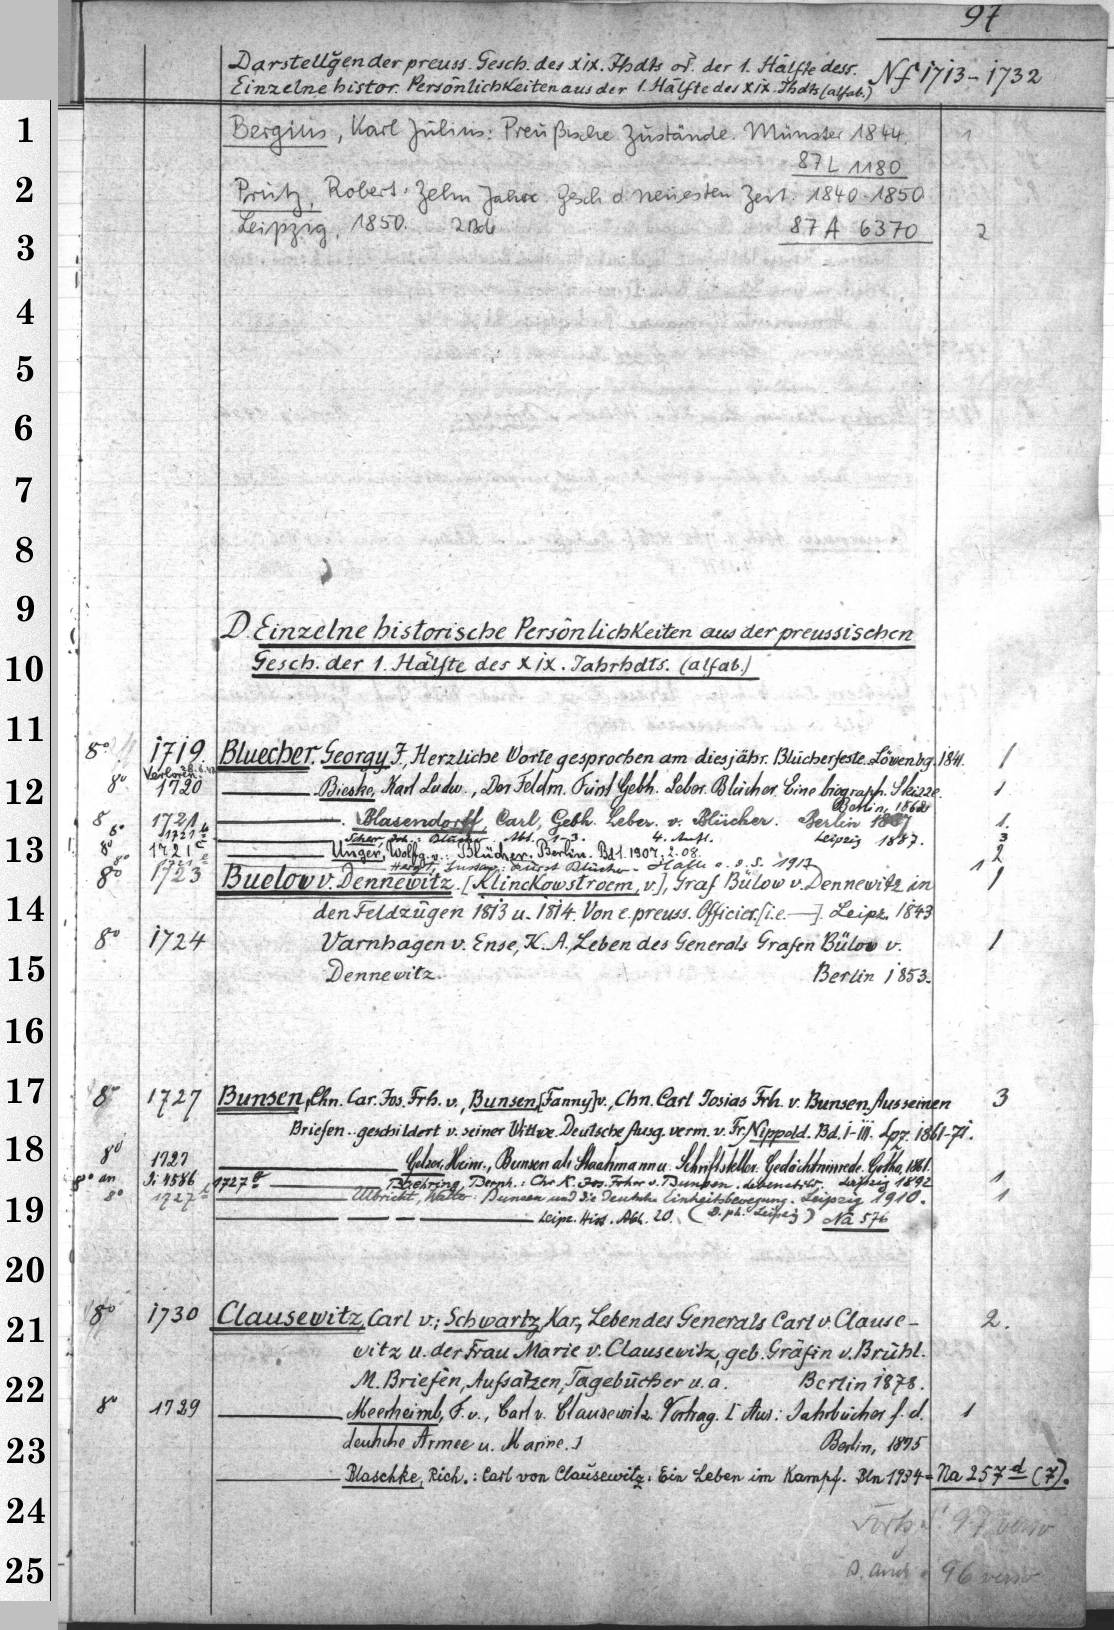 97
Darstellgen der preuss. Gesch. des XIX. Jhdts od. der 1. Hälfte dess. Nf 1713-1732
Einzelne histor. Persönlichkeiten aus der 1. Hälfte des XIX. Jhdts (alfab.)
1
Bergius, Karl Julius: Preußische Zustände. Münster 1844. 1
87 L 1180
2
Prutz, Robert: Zehn Jahre. Gesch d neuesten Zeit. 1840-1850
Leipzig, 1850. 2 Bde 87 A 6370 2
3
4
5
6
7
8
9
D. Einzelne historische Persönlichkeiten aus der preussischen
10
Gesch. der 1. Hälfte des XIX. Jahrhdts. (alfab.)
11
8° 1719 Bluecher. Georgy, F., Herzliche Worte gesprochen am diesjähr. Blücherfeste. Löwenbg. 1841. 1
Verloren
12
8° 1720 Bieske, Karl Ludw., Der Feldm. Fürst Gebh. Leber. Blücher. Eine biograph. Skizze. 1
Berlin, 1862
8° 1721 Blasendorff, Carl, Gebh. Leber. v. Blücher. Berlin 1887. 1.
8° 1721 b Scherr, Joh.: Blücher. Abt. 1-3. 4. Aufl. Leipzig 1887. 3
13
8° 1721 c Unger, Wolfg. v.: Blücher. Berlin. Bd 1. 1907, 2. 08. 2
8° Blücher - Halle a. d. S. 1913 1
8° 1723 Buelow v. Dennewitz. [Klinckowstroem, v.], Graf Bülow v. Dennewitz in 1
14
den Feldzügen 1813 u. 1814. Von e. preuss. Officier. [i.e. —] Leipz. 1843
8° 1724 Varnhagen v. Ense, K. A., Leben des Generals Grafen Bülow v. 1
15
Dennewitz. Berlin 1853.
16
17
8° 1727 Bunsen, Chn. Car. Jos. Frh. v., Bunsen, [Fanny] v., Chn. Carl Josias Frh. v. Bunsen. Aus seinen 3
Briefen .. geschildert v. seiner Wittwe. Deutsche Ausg. verm. v. Fr. Nippold. Bd. I-III. Lpz. 1861-71.
18
8° 1727 Gelzer, Heinr., Bunsen als Staatmann u. Schriftsteller. Gedächtnissrede. Gotha, 1861.
8° an Si 4586 1727 a Baehring, Bernh.: Chr. K. Jos. Frhr v. Bunsen. Lebensbild. Leipzig 1892 1
8° 1727 Ulbricht, Walter: Bunsen und die deutsche Einheitsbewegung. Leipzig 1910. 1
19
Leipz. Hist. Abh. 20. (D. ph. Leipzig) Na 576
20
21
8° 1730 Clausewitz, Carl v.; Schwartz, Kar., Leben des Generals Carl v. Clause- 2.
witz u. der Frau Marie v. Clausewitz, geb. Gräfin v. Brühl.
22
M. Briefen, Aufsätzen, Tagebücher u. a. Berlin 1878.
8° 1729 Meerheimb, F. v., Carl v. Clausewitz. Vortrag. [Aus: Jahrbücher f. d. 1
23
deutsche Armee u. Marine.] Berlin, 1875
Blaschke, Rich.: Carl von Clausewitz: Ein Leben im Kampf. Bln 1934 = Na 257 d (7).
24
Forts. 97 verso
25
s. auch 96 verso